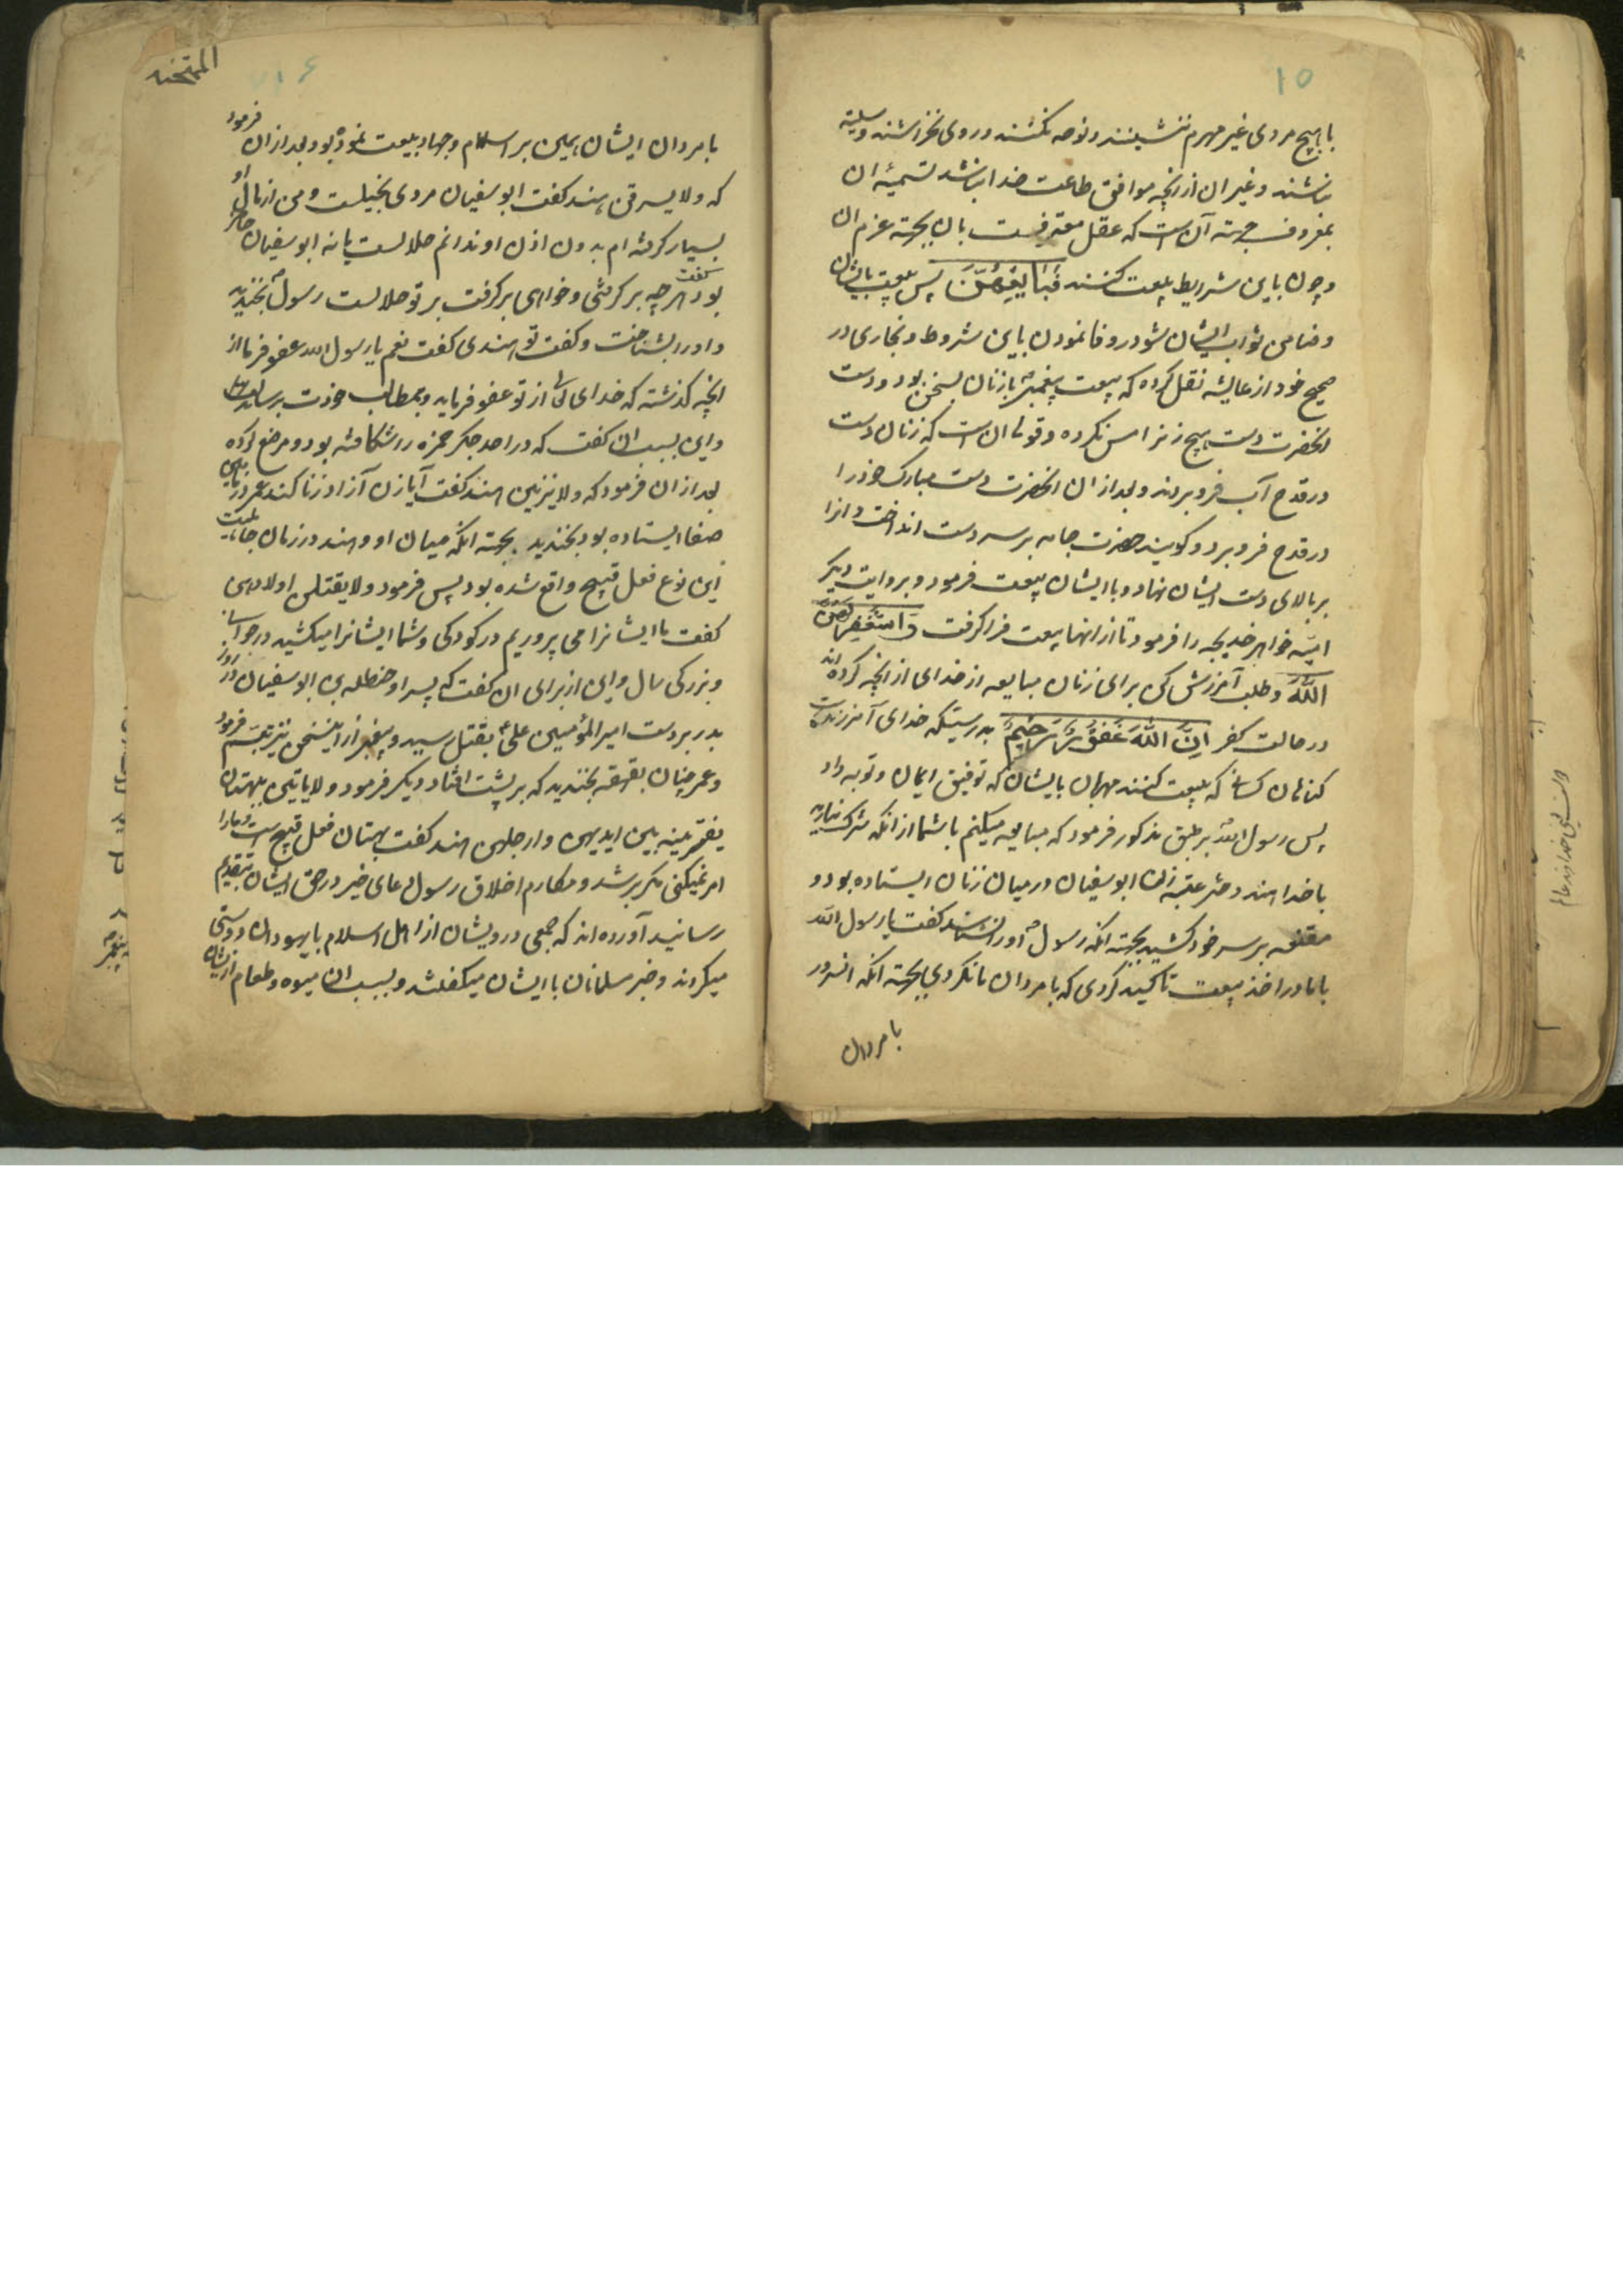 ۱۵
با هیچ مردی غیر محرم ننشینند و نوحه نکنند و روی نخراشند و سلیته
نباشند و غیر ان از انچه موافق طاعت خدا باشد تسمیهٔ ان
بمعروف جهته آن است که عقل معترفست بان بجهته عزم ان
و چون باین شرایط بیعت کنند فَبَایِعْهُنَّ پس بیعت بایشان
و ضامن ثواب ایشان شو در وفا نمودن باین شروط و بخاری در
صحیح خود از عایشه نقل کرده که بیعت پیغمبر با زنان بسخن بود و دست
انحضرت دست هیچ زنرا مس نکرده و قولی ان است که زنان دست
در قدح آب فرو بردند و بعد از ان انحضرت دست مبارک خود را
در قدح فرو برد و کویند حضرت جامه بر سر دست انداخت و انرا
بر بالای دست ایشان نهاد و با ایشان بیعت فرمود و بروایت دیکر
امیّه خواهر خدیجه را فرمود تا از انها بیعت فرا کرفت وَاسْتَغْفِرْ لَهُنَّ
اللَّهَ و طلب آمرزش کن برای زنان مبایعه از خدای از انچه کرده اند
در حالت کفر اِنَّ اللَّهَ غَفُورٌ رَحِیمٌ بدرستیکه خدای آمرزنده است
کناهان کسانی که بیعت کنند مهربان بایشان که توفیق ایمان و توبه داد
پس رسول اللّه بر طبق مذکور فرمود که مبایعه میکنم با شما از انکه شرک نیارید
با خدا هند دختر عتبه زن ابو سفیان در میان زنان ایستاده بود و
مقنعه بر سر خود کشید بجهته انکه رسول او را نشناسد کفت یا رسول اللّه
با ما در اخذ بیعت تاکید کردی که با مردان ما نکردی بجهته انکه انروز
با مردان
الممتحنه
۷۱۶
با مردان ایشان همین بر اسلام و جهاد بیعت نموده بود و بعد از ان فرمود
که ولا یسرقن هند کفت ابو سفیان مردی بخیلست و من از مال او
بسیار کرفته ام بدون اذن او ندانم حلالست یا نه ابو سفیان حاضر
بود کفت هر چه بر کرفتی و خواهی بر کرفت بر تو حلالست رسول بخندید
و او را بشناخت و کفت تو هندی کفت نعم یا رسول اللّه عفو فرما از
انچه کذشته که خدای تعالی از تو عفو فرماید و بمطالب خودت برساند
و این بسبب ان کفت که در احد جکر حمزه را شکافته بود و
بعد از ان فرمود که ولا یزنین هند کفت آیا زن آزاد زنا کند عمر در
صفا ایستاده بود بخندید بجهته انکه میان او و هند در زمان جاهلیت
این نوع فعل قبیح واقع شده بود پس فرمود ولا یقتلن اولادهن
کفت ما ایشانرا می پروریم در کودکی و شما ایشانرا میکشید در جوانی
و بزرکی سال و این از برای ان کفت که پسر او حنظله بن ابو سفیان در روز
بدر بر دست امیر المؤمنین علی بقتل رسید و پیغمبر از اینسخن نیز تبسّم فرمود
و عمر چنان بقهقهه بخندید که بر پشت افتاد و دیکر فرمود ولا یاتین ببهتان
یفترینه بین ایدیهن و ارجلهن هند کفت بهتان فعل قبیح است و ما را
امر نمیکنی مکر برشد و مکارم اخلاق رسول دعای خیر در حق ایشان بتقدیم
رسانید آورده اند که جمعی درویشان از اهل اسلام با یهودان دوستی
میکردند و خبر مسلمانان با ایشان میکفتند و بسبب ان میوه و طعام از ایشان